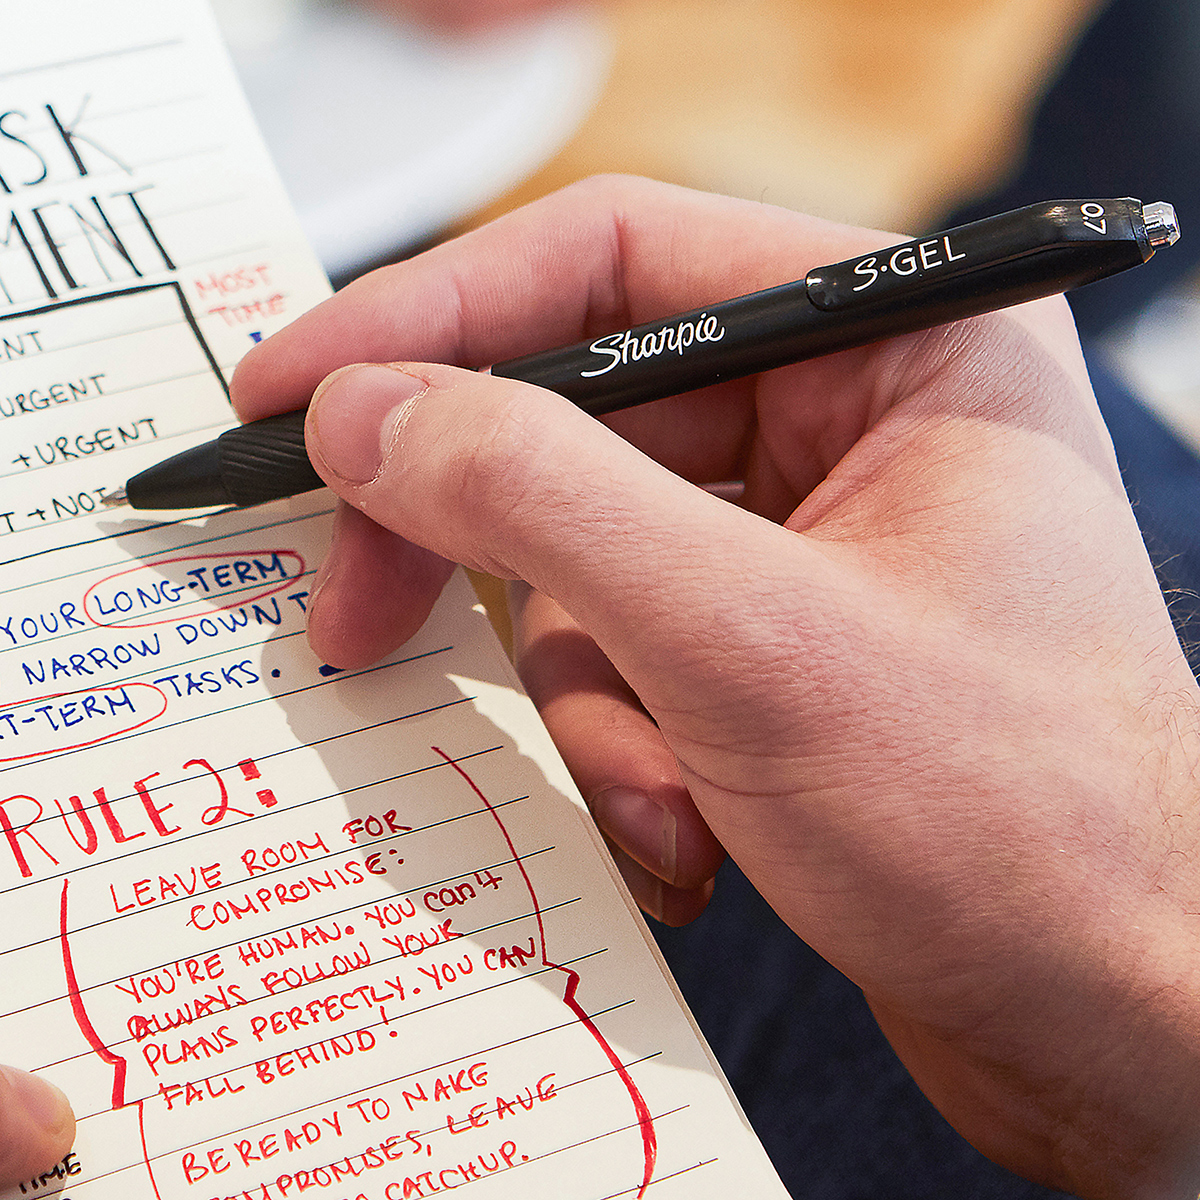 SK
MENT
MOST
TIME
NT
URGENT
+URGENT
T +NOT
YOUR LONG-TERM
NARROW DOWN T
T-TERM TASKS.
RULE 2:
LEAVE ROOM FOR
COMPROMISE:
YOU'RE HUMAN. YOU can't
ALWAYS FOLLOW YOUR
PLANS PERFECTLY. YOU CAN
FALL BEHIND!
BE READY TO MAKE
OMPROMISES, LEAVE
CATCHUP.
TIME
Sharpie
S·GEL
0.7